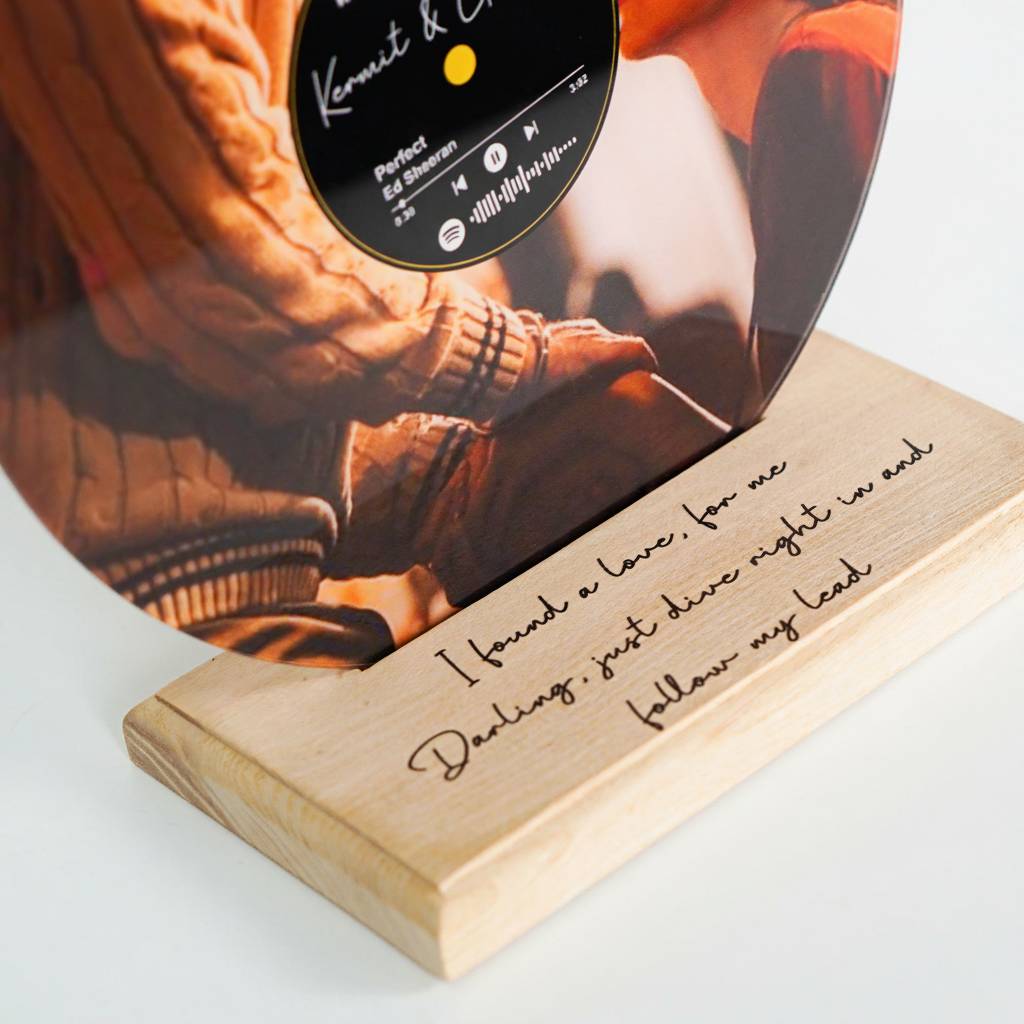 Kermit &
Perfect
Ed Sheeran
0:30
3:02
I found a love, for me
Darling, just dive right in and
follow my lead